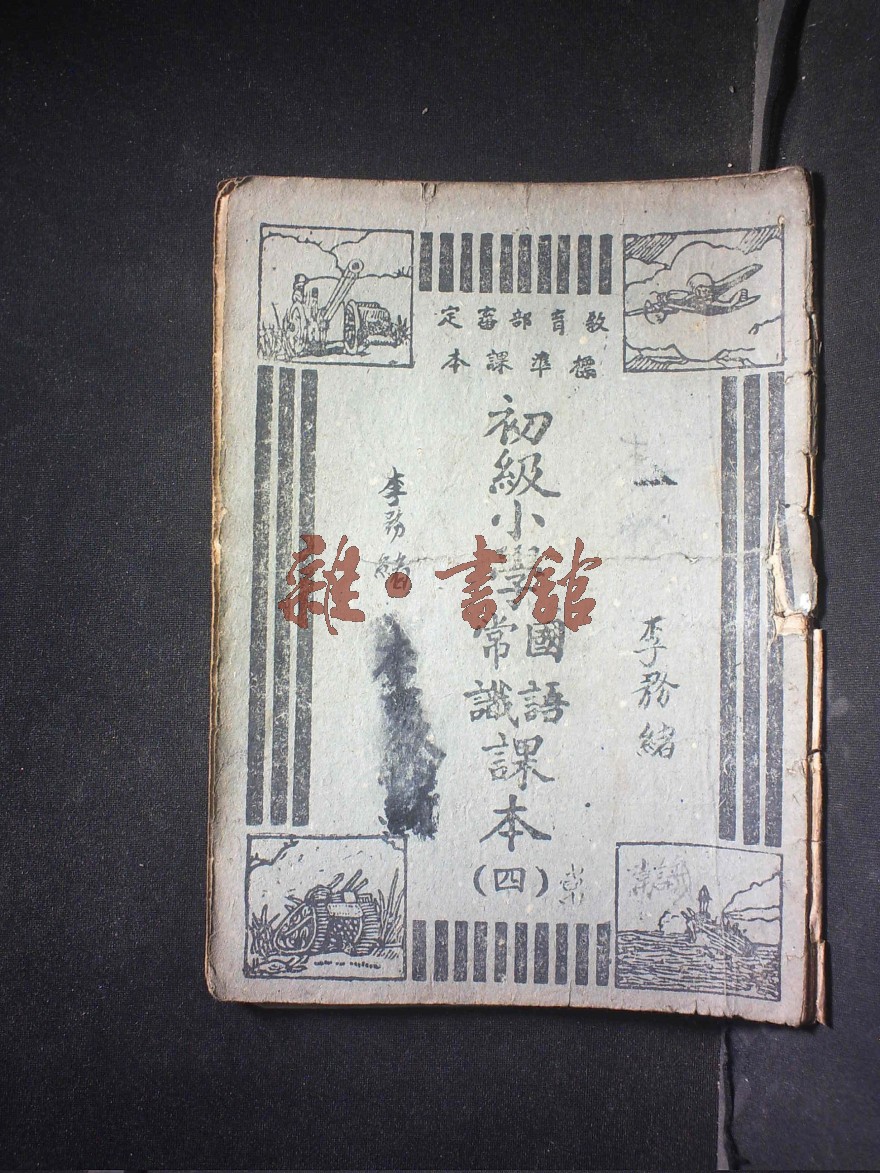 教育部審定
標準課本
初級小學國語常識課本
(四)
常
李務緒
李務緒
雜·書館